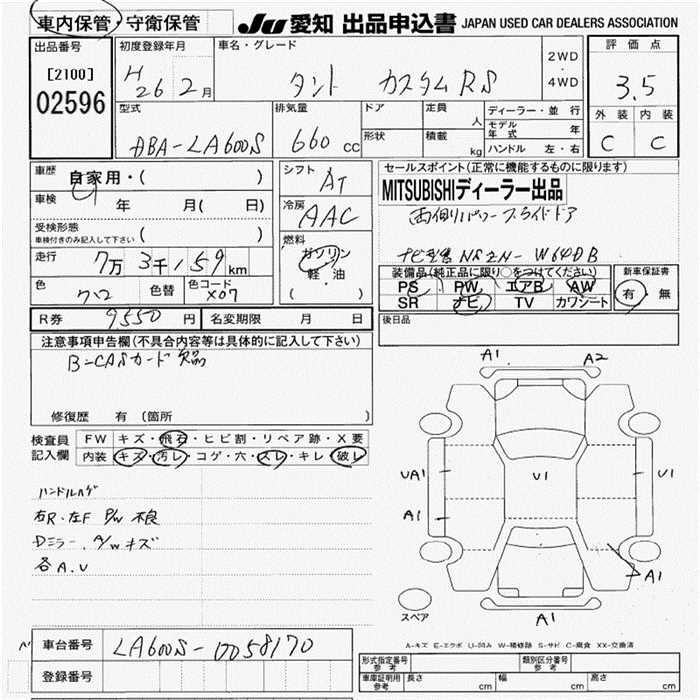 車内保管・守衛保管
JU 愛知 出品申込書 JAPAN USED CAR DEALERS ASSOCIATION
出品番号
[2100]
02596
初度登録年月
H26 2月
車名・グレード
タント カスタムRS
2WD
・
4WD
評価点
3.5
外装 内装
C C
型式
DBA-LA600S
排気量
660 cc
ドア
形状
定員 人
積載 kg
ディーラー・並行
モデル年式 年
ハンドル 左・右
車歴
自家用・( )
車検 年 月( 日)
受検形態
車検付きのみ記入して下さい ( )
走行 7万3千159km
色 クロ 色替 色コード X07
シフト
AT
冷房
AAC
燃料
ガソリン
軽・油
( )
セールスポイント(正常に機能するものに限ります)
MITSUBISHIディーラー出品
両側パワースライドドア
ナビ型番 NSZN-W64DB
装備品(純正品に限り○をつけてください)
PS PW エアB AW
SR ナビ TV カワシート
新車保証書
有・無
R券 9550円 名変期限 月 日
後日品
注意事項申告欄(不具合内容等は具体的に記入して下さい)
B-CASカード欠品
修復歴 有(箇所 )
検査員記入欄
FW キズ・飛石・ヒビ割・リペア跡・X要
内装 キズ・汚レ・コゲ・穴・スレ・キレ・破レ
ハンドルハゲ
右R・左F P/W 不良
Dミラー、A/W キズ
各A.U
A1 A2
UA1 U1 U1
A1
A1
A1
スペア
A-キズ E-エクボ U-凹み W-補修跡 S-サビ C-腐食 XX-交換済
車台番号 LA600S-0058170
登録番号
形式指定番号 参考
類別区分番号 参考
車庫証明用 参考 長さ cm 幅 cm 高さ cm